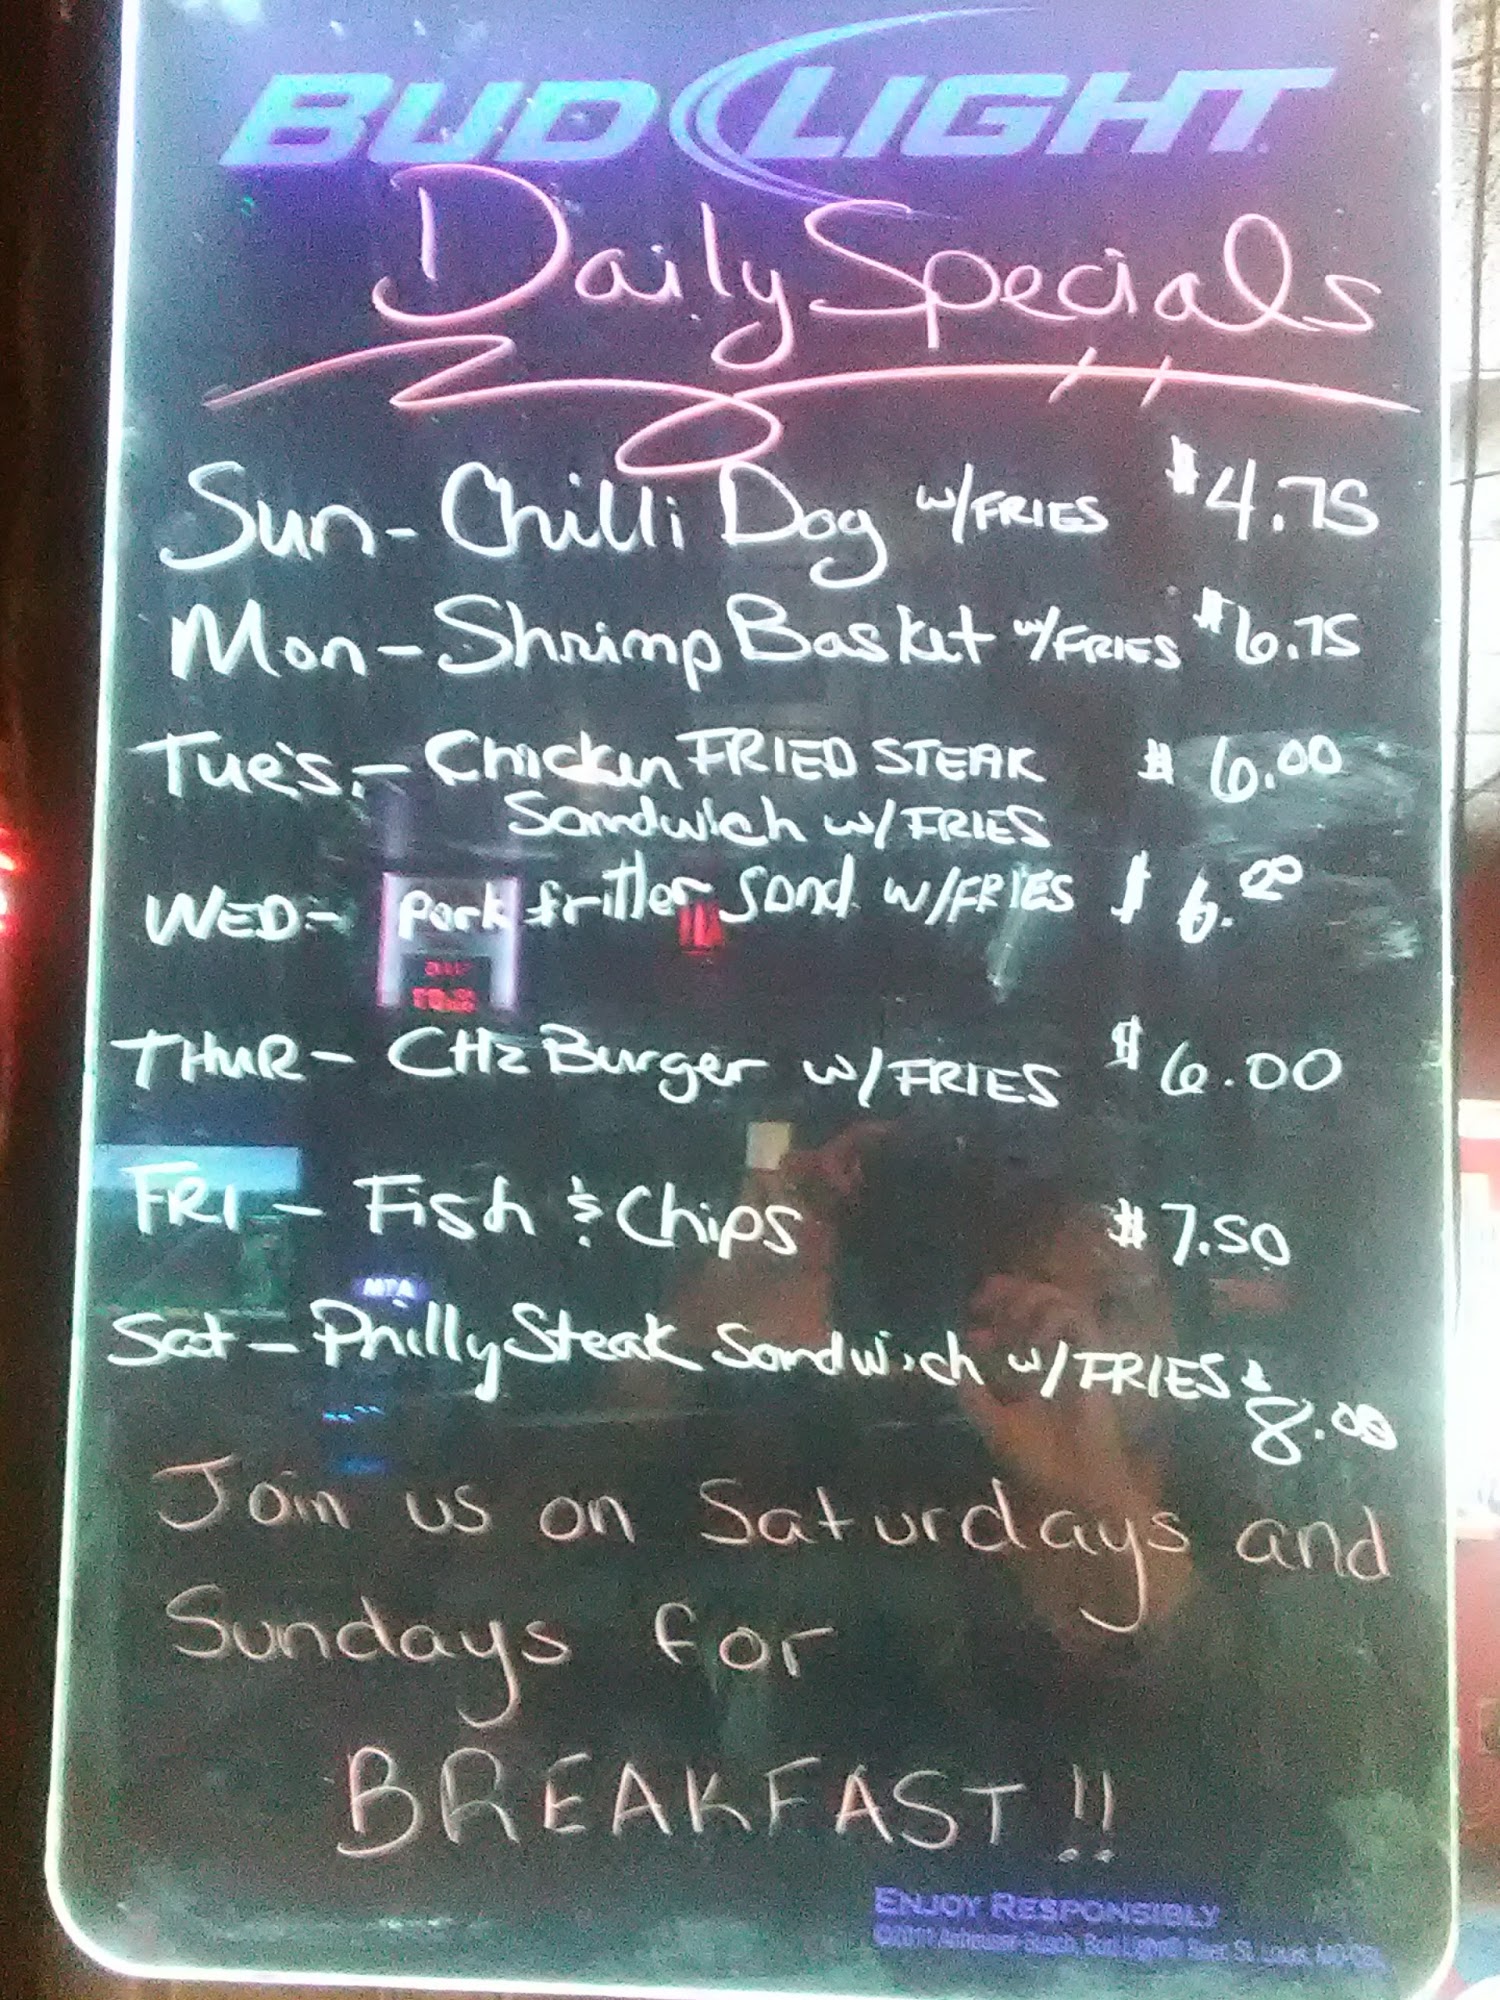 BUD LIGHT
Daily Specials
Sun - Chilli Dog w/FRIES $4.75
Mon - Shrimp Basket w/FRIES $6.75
Tue's. - Chicken FRIED STEAK $6.00
Sandwich w/FRIES
WED - Pork fritter Sand. w/FRIES $6.00
THUR - CHz Burger w/FRIES $6.00
FRI - Fish & Chips $7.50
Sat - Philly Steak Sandwich w/FRIES $
8.00
Join us on Saturdays and
Sundays for
BREAKFAST!!
ENJOY RESPONSIBLY
©2011 Anheuser-Busch, Bud Light® Beer, St. Louis, MO